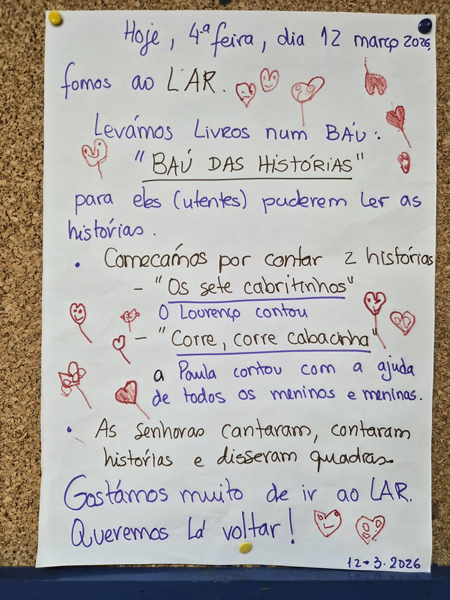 Hoje, 4ª feira, dia 12 março 2026,
fomos ao LAR.
Levámos Livros num BAÚ:
"BAÚ DAS HISTÓRIAS"
para eles (utentes) puderem ler as
histórias.
• Começámos por contar 2 histórias
- "Os sete cabritinhos"
O Lourenço contou
- "Corre, corre cabacinha"
a Paula contou com a ajuda
de todos os meninos e meninas.
• As senhoras cantaram, contaram
histórias e disseram quadras.
Gostámos muito de ir ao LAR.
Queremos lá voltar!
12-3.2026